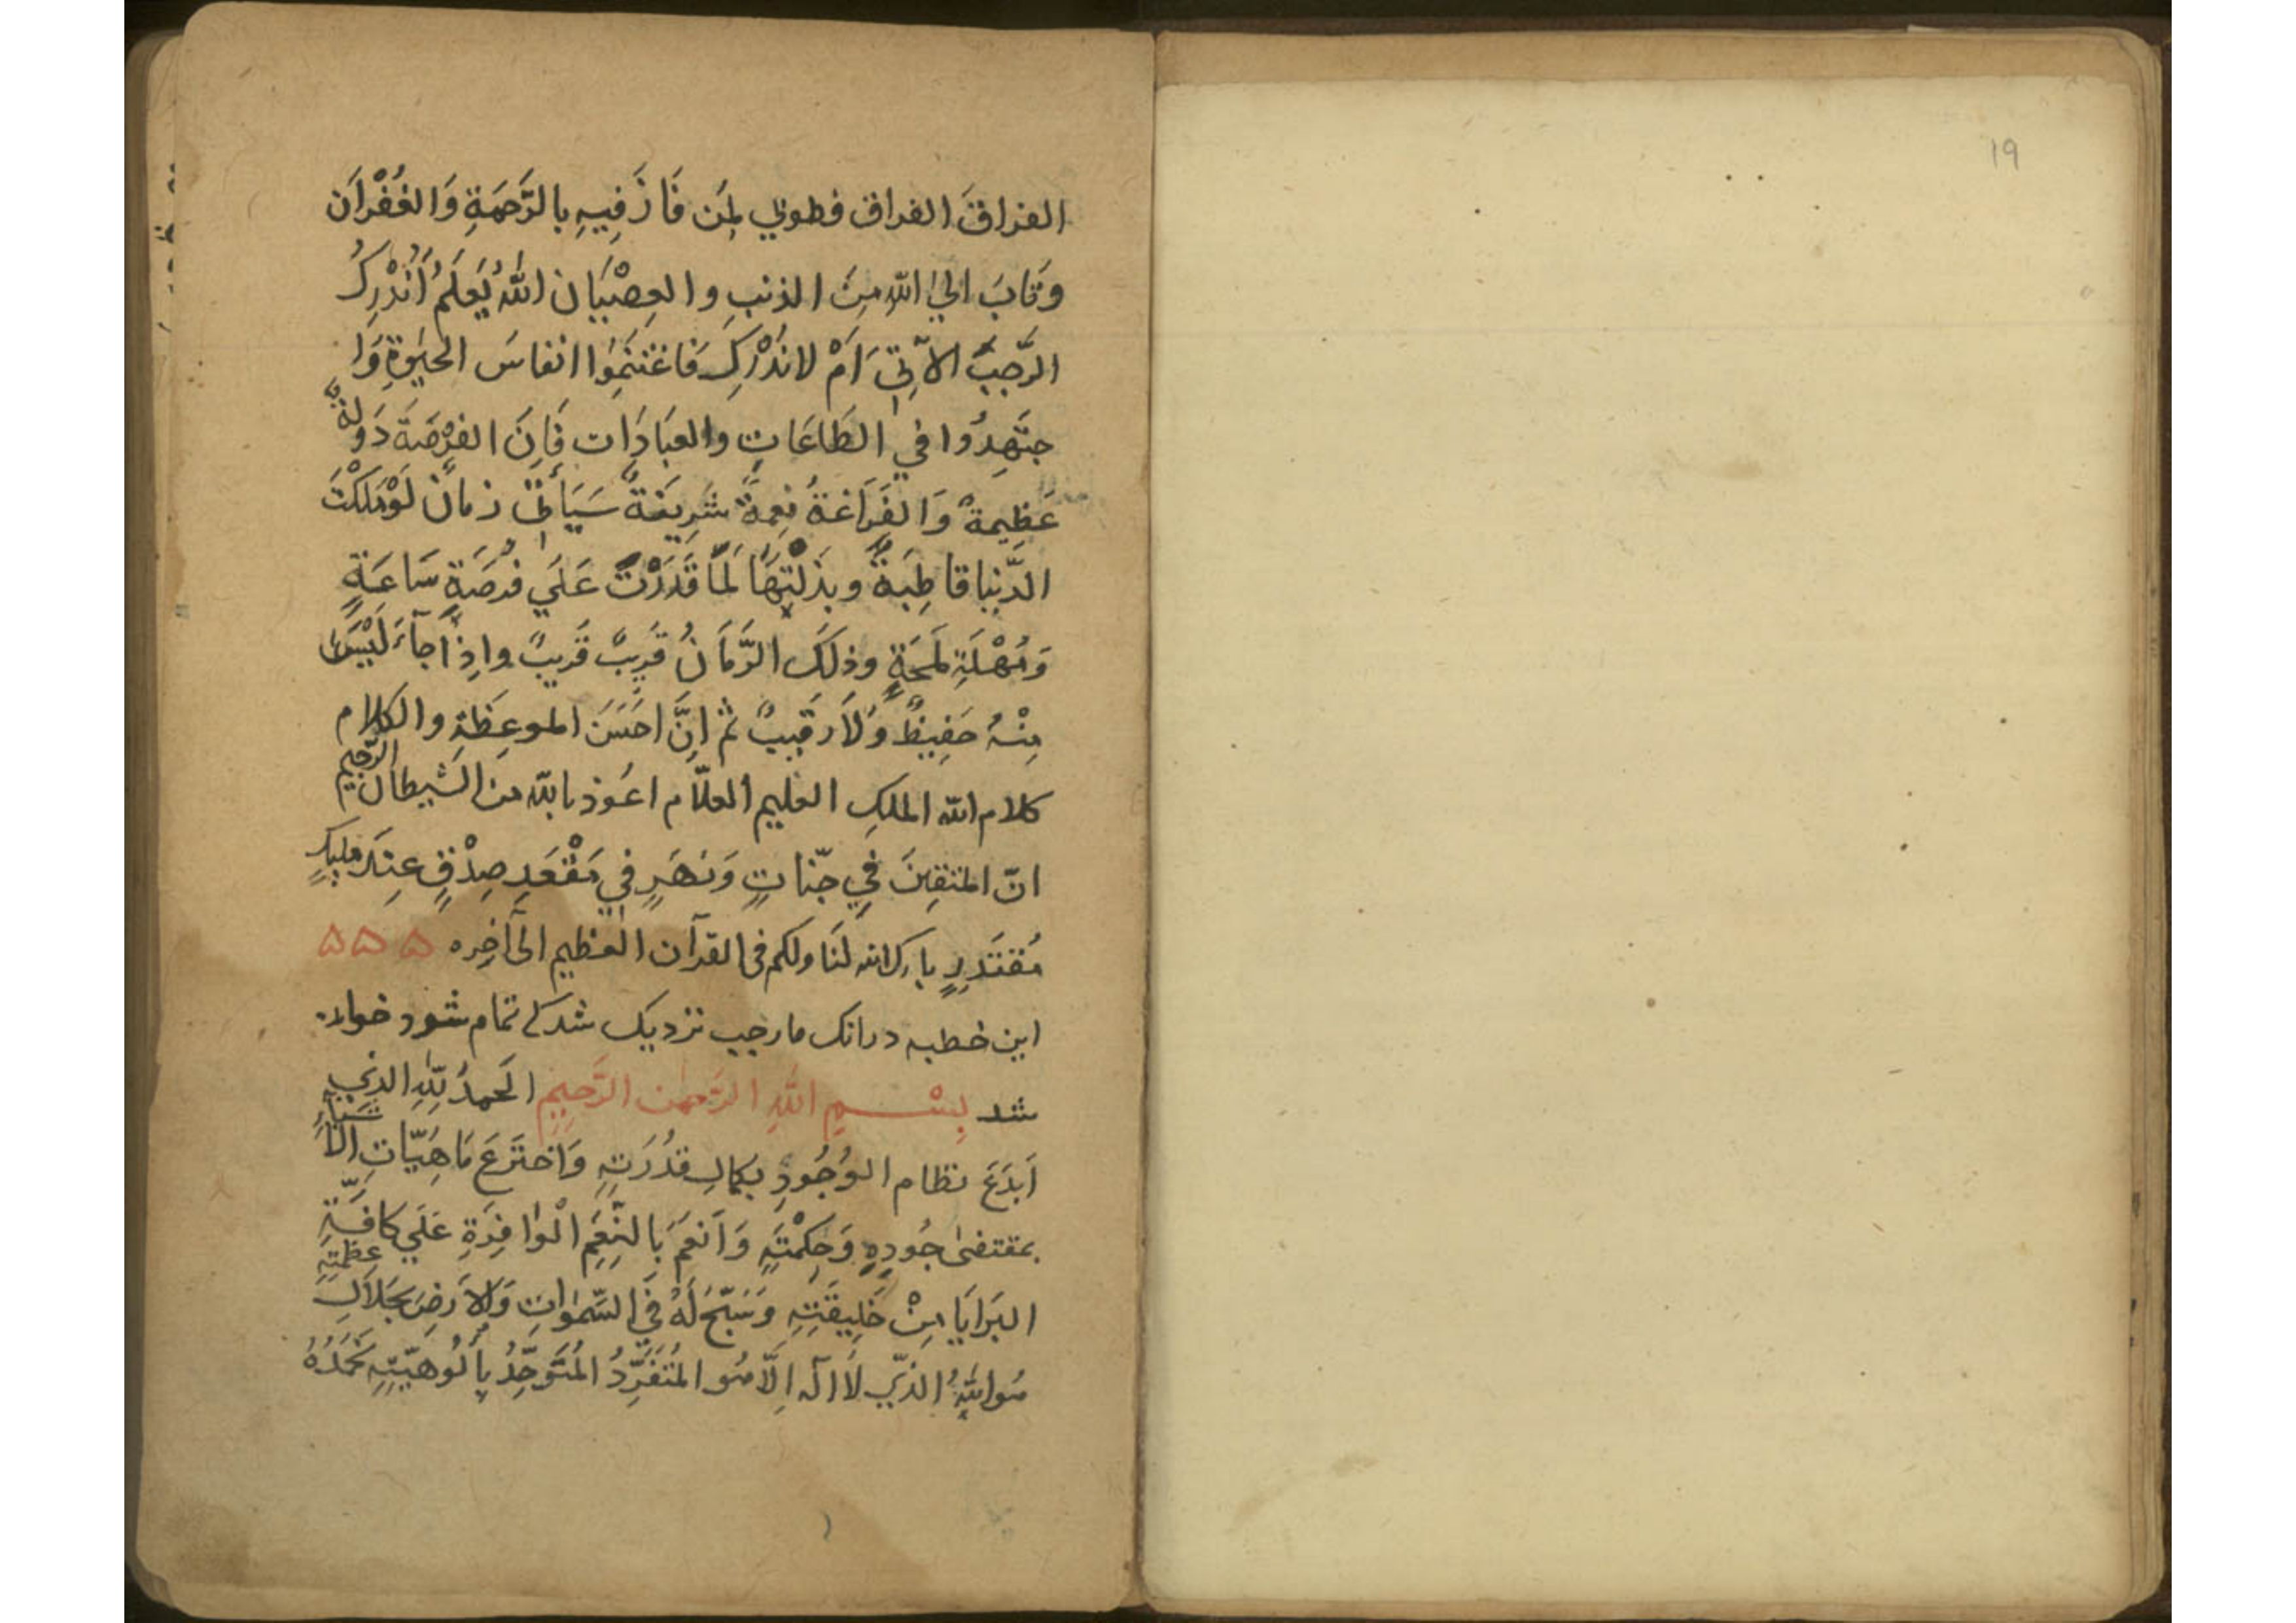 19
الفراقَ الفراق فطوبي لِمَن فَازَ فِيهِ بالرَّحمَةِ وَالغُفْرَان
وَتَابَ اليٰ اللّٰهِ مِنَ الذنبِ والعِصْيَان اللّٰهُ يَعلَمُ اَنُدْرِكُ
الرَّجبَ الآتِيَ اَمْ لانُدْرِك فَاغتنِمُوا انفاسَ الحيٰوةِ وَا
جتَهِدُوا في الطَاعَاتِ والعبَادَات فَاِنَ الفُرْصَةَ دَولةٌ
عَظِيمةٌ وَالفَرَاغةُ نِعمةٌ شَرِيفةٌ سَيَأتِى زمانٌ لَوْمَلكْتَ
الدُّنيا قاطِبَةً وبذلْتَهَا لَمَا قَدَرْتَ عَلَي فُرصَةِ سَاعَةٍ
وَمُهْلَةِ لَمحَةٍ وذلكَ الزَّمَانُ قَرِيبٌ قَرِيبٌ واِذا جآءَ لَيْسَ
مِنْهُ حَفِيظٌ وَلاَ رَقيبٌ ثم اِنَّ احَسَنَ الموعِظَةِ والكلام
كلام اللّٰه الملكِ العليم العلاّم اعوذ باللّٰه من الشيطان الرّجيم
انّ المتقِينَ فِي جنّاتٍ وَنَهَرٍ في مَقْعَدِ صِدْقٍ عِندَ مليكٍ
مُقتَدِرٍ بارك اللّٰه لَنَا ولكم فى القرآن العظيم الى آخِره ۵ ۵ ۵
اين خطبه درانك مارجب نزديك شدكى تمام شود خوانـ
شد بِسْـــمِ اللّٰهِ الرَّحمٰن الرَّحِيمِ اَلحمدُ لِلّٰهِ الذِي
اَبدَعَ نظام الوُجُودِ بكمالِ قدُرَتِهِ وَاختَرَعَ مَاهِيّاتِ الاَشيَاءِ
بمقتضىٰ جُودِهِ وَحِكْمتِهِ وَاَنعَمَ بَالنِّعَمِ الْوَافِرَةِ عَلَي كافَّةِ
البَرَايَا مِنْ خَلِيقَتِهِ وَسَبّحَ لَهُ فيِ السّمٰوات وَالاَرضَ بجَلاَلِ عظمتِهِ
هُو اللّٰهُ الذّي لاَ الٰه اِلَّا هُو المُتَفَرِّدُ المُتَوَحِّدُ بِاُلوُهيّتِهِ نَحمَدُهُ